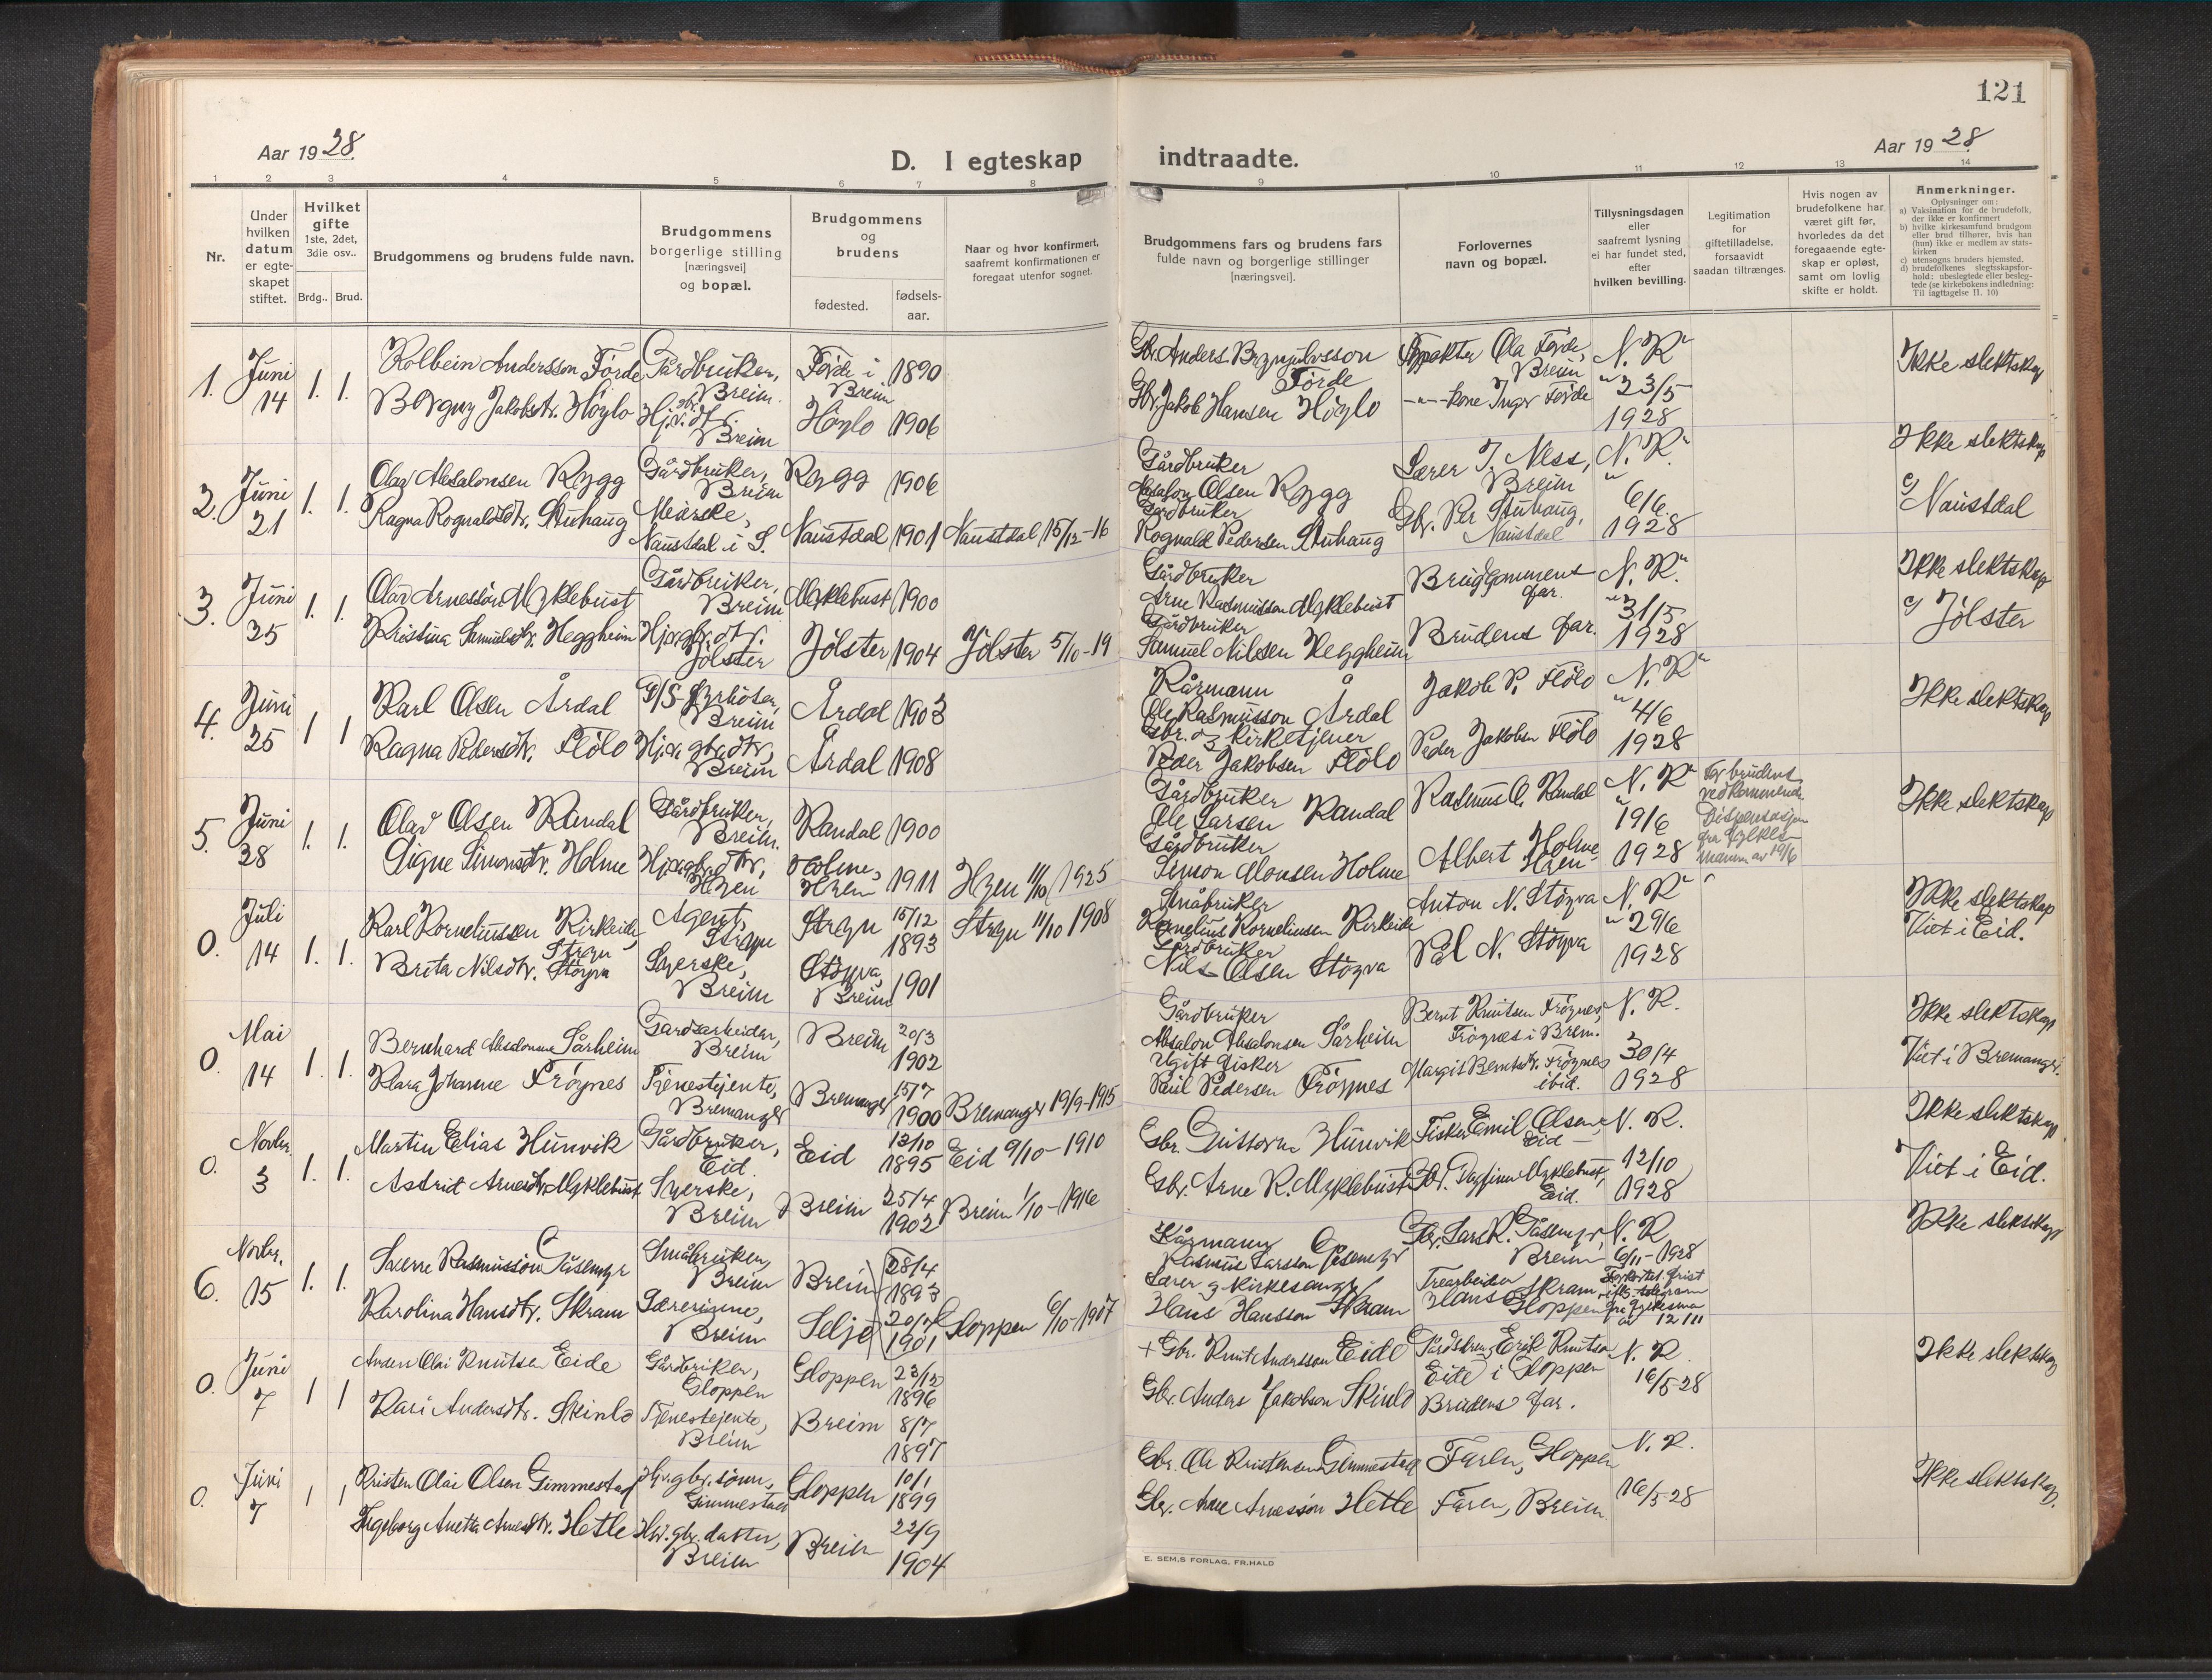 121
Aar 1928.
D. I egteskap
indtraadte.
Aar 1928.
1 2 3 4 5 6 7 8 9 10 11 12 13 14
Nr.
Under
hvilken
datum
er egte-
skapet
stiftet.
Hvilket
gifte
1ste, 2det,
3die osv..
Brdg..
Brud.
Brudgommens og brudens fulde navn.
Brudgommens
borgerlige stilling
[næringsvei]
og bopæl.
Brudgommens
og
brudens
fødested.
fødsels-
aar.
Naar og hvor konfirmert,
saafremt konfirmationen er
foregaat utenfor sognet.
Brudgommens fars og brudens fars
fulde navn og borgerlige stillinger
[næringsvei].
Forlovernes
navn og bopæl.
Tillysningsdagen
eller
saafremt lysning
ei har fundet sted,
efter
hvilken bevilling.
Legitimation
for
giftetilladelse,
forsaavidt
saadan tiltrænges.
Hvis nogen av
brudefolkene har
været gift før,
hvorledes da det
foregaaende egte-
skap er opløst,
samt om lovlig
skifte er holdt.
Anmerkninger.
Oplysninger om:
a) Vaksination for de brudefolk,
der ikke er konfirmert
b) hvilke kirkesamfund brudgom
eller brud tilhører, hvis han
(hun) ikke er medlem av stats-
kirken
c) utensogns bruders hjemsted.
d) brudefolkenes slegtsskapsfor-
hold: ubeslegtede eller besleg-
tede (se kirkebokens indledning:
Til iagttagelse 11. 10)
1. Juni 14 1. 1.
Kolbein Andersson Førde
Borguy Jakobsdtr. Høylo
Gardbruker,
Breim.
Hj.v. gbr. dtr.
Breim
Førde i
Breim
1890
Høylo 1906
Gbr. Anders Brynjulvsson
Førde
Gbr. Jakob Hansen Høylo
Ola Førde,
Breim
-"- kone Inger Førde
N. K.
23/5
1928
Ikke slektskap
2. Juni 21 1. 1.
Olav Absalonsen Rygg
Ragna Rognaldsdtr. Stuhaug
Gårdbruker,
Breim
Meierske,
Naustdal i S.
Rygg 1906
Naustdal 1901
Naustdal 15/12-16
Gårdbruker
Absalon Olsen Rygg
Gårdbruker
Rognald Pedersen Stuhaug
Lærer J. Ness,
Breim
Gbr. Per Stuhaug,
Naustdal
N. K.
6/6.
1928
Ikke slektskap
c) Naustdal
3. Juni 25 1. 1.
Olav Arnesson Myklebust
Kristina Samuelsdtr. Heggheim
Gårdbruker,
Breim
Hjv. gbr. dtr.
Jølster
Myklebust 1900
Jølster 1904
Jølster 5/10-19
Gårdbruker
Arne Rasmusson Myklebust
Gårdbruker
Samuel Nilsen Heggheim
Brudgommens
far.
Brudens far.
N. K.
31/5
1928
Ikke slektskap
c) Jølster
4. Juni 25 1 1
Karl Olsen Årdal
Ragna Pedersdtr. Flølo
D/S-fyrbøter,
Breim
Hjv. gbr. dtr,
Breim
Årdal 1903
Årdal 1908
Kårmann
Ole Rasmusson Årdal
Gbr. og kirketjener
Peder Jakobsen Flølo
Jakob P. Flølo
Peder Jakobsen Flølo
N. K.
4/6
1928
Ikke slektskap
5. Juni 28 1. 1.
Olav Olsen Randal
Signe Simonsdtr. Holme
Gårdbruker,
Breim.
Hjv. gbr. dtr,
Hyen
Randal 1900
Holme,
Hyen
1911
Hyen 11/10 1925
Gårdbruker
Ole Larsen Randal
Gårdbruker
Simon Monsen Holme
Rasmus O. Randal
Albert Holme
Hyen
N. K.
19/6
1928
For brudens
vedkommende.
Dispensasjon
fra Fylkes-
mannen av 19/6
Ikke slektskap
0. Juli 14 1. 1.
Karl Korneliussen Kirkeide,
Stryn
Brita Nilsdtr. Støyva
Agent,
Stryn
Syerske,
Breim
Stryn
15/12
1893
Støyva,
Breim
1901
Stryn 11/10 1908
Småbruker
Kornelius Korneliussen Kirkeide
Gårdbruker
Nils Olsen Støyva
Anton N. Støyva
Pål N. Støyva
N. K.
29/6
1928
Ikke slektskap
Viet i Eid.
0. Mai 14 1. 1.
Bernhard Absalonsen Sårheim
Klara Johanne Frøynes
Gardsarbeider,
Breim
Tjenestejente,
Bremanger
Breim
20/3
1902
Bremanger
15/7
1900
Bremanger 19/9-1915
Gårdbruker
Absalon Absalonsen Sårheim
Ugift fisker
Paul Pedersen Frøynes
Bernt Knutsen Frøynes,
Frøynes i Brem.
Margit Berntsdtr. Frøynes
ibid.
N. K.
30/4
1928
Ikke slektskap
Viet i Bremanger.
0. Novbr. 3 1. 1.
Martin Elias Hunvik
Astrid Arnesdtr. Myklebust
Gårdbruker,
Eid.
Syerske,
Breim
Eid
13/10
1895
Breim
25/4
1902
Eid 9/10-1910
Breim 1/10-1916
Gbr. Guttorm Hunvik
Gbr. Arne R. Myklebust
Fisker Emil Olsen,
Eid
Dagfinn Myklebust,
Eid.
N. K.
12/10
1928
Ikke slektskap
Viet i Eid.
6. Novbr. 15 1. 1.
Sverre Rasmusson Gåsemyr
Karolina Hansdtr. Skram
Småbruker,
Breim
Lærerinne,
Breim
Breim
28/4
1893
Selje
1901
Gloppen 6/10-1907
Kårmann
Rasmus Larsson Gåsemyr
Lærer og kirkesanger
Hans Hansson Skram
Gbr. Lars R. Gåsemyr,
Breim
Trearbeider
Hans Skram
Gloppen
N. K
6/11-1928
Forkortet frist
ifl. telegram
fra fylkesm
av 12/11
Ikke slektskap
0. Juni 7 1 1
Anders Olai Knutsen Eide
Kari Andersdtr. Skinlo
Gårdbruker,
Gloppen
Tjenestejente,
Breim
Gloppen
23/12
1896
Breim
8/7
1897
+ Gbr. Knut Andersson Eide
Gbr. Anders Jakobson Skinlo
Erik Knutson
Eide i Gloppen
Brudens far.
N. K
16/5-28
Ikke slektskap
0. Juni 7 1 1
Kristen Olai Olsen Gimmestad
Ingeborg Anetta Arnesdtr. Hetle
Hjv. gbr. sønn,
Gimmestad
Hjv. gbr. datter,
Breim
Gloppen
10/1
1899
Breim
22/9
1904
Gbr. Ole Kristensen Gimmestad
Gbr. Arne Arnesson Hetle
Faren, Gloppen
Faren, Breim.
N. K.
16/5-28
Ikke slektskap.
E. SEM,S FORLAG, FR.HALD